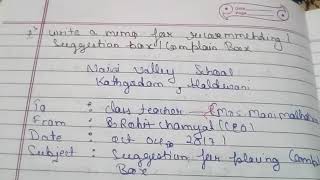 write a memo for recommending /
Suggestion box / Complain Box
Naini Valley School
Kathgodam, Haldwani
To : class teacher (Mrs Mani malhotra
From : Rohit Chamyal (CPO)
Date : oct 28
Subject : Suggestion for placing
Box